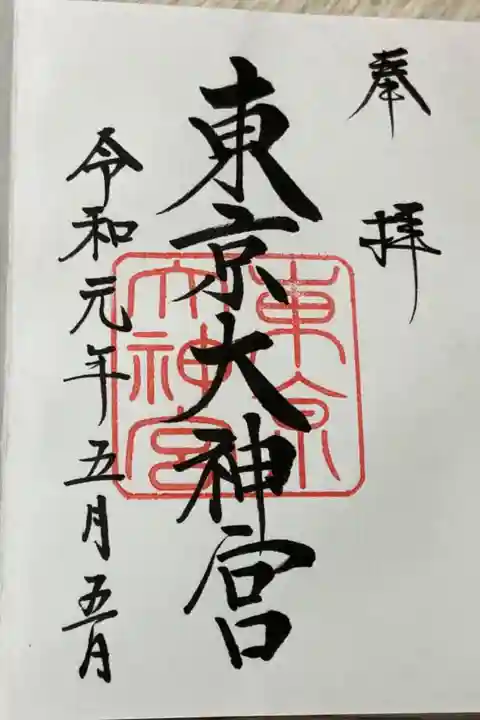 奉拝
東京大神宮
東京
大神宮
令和元年五月五日